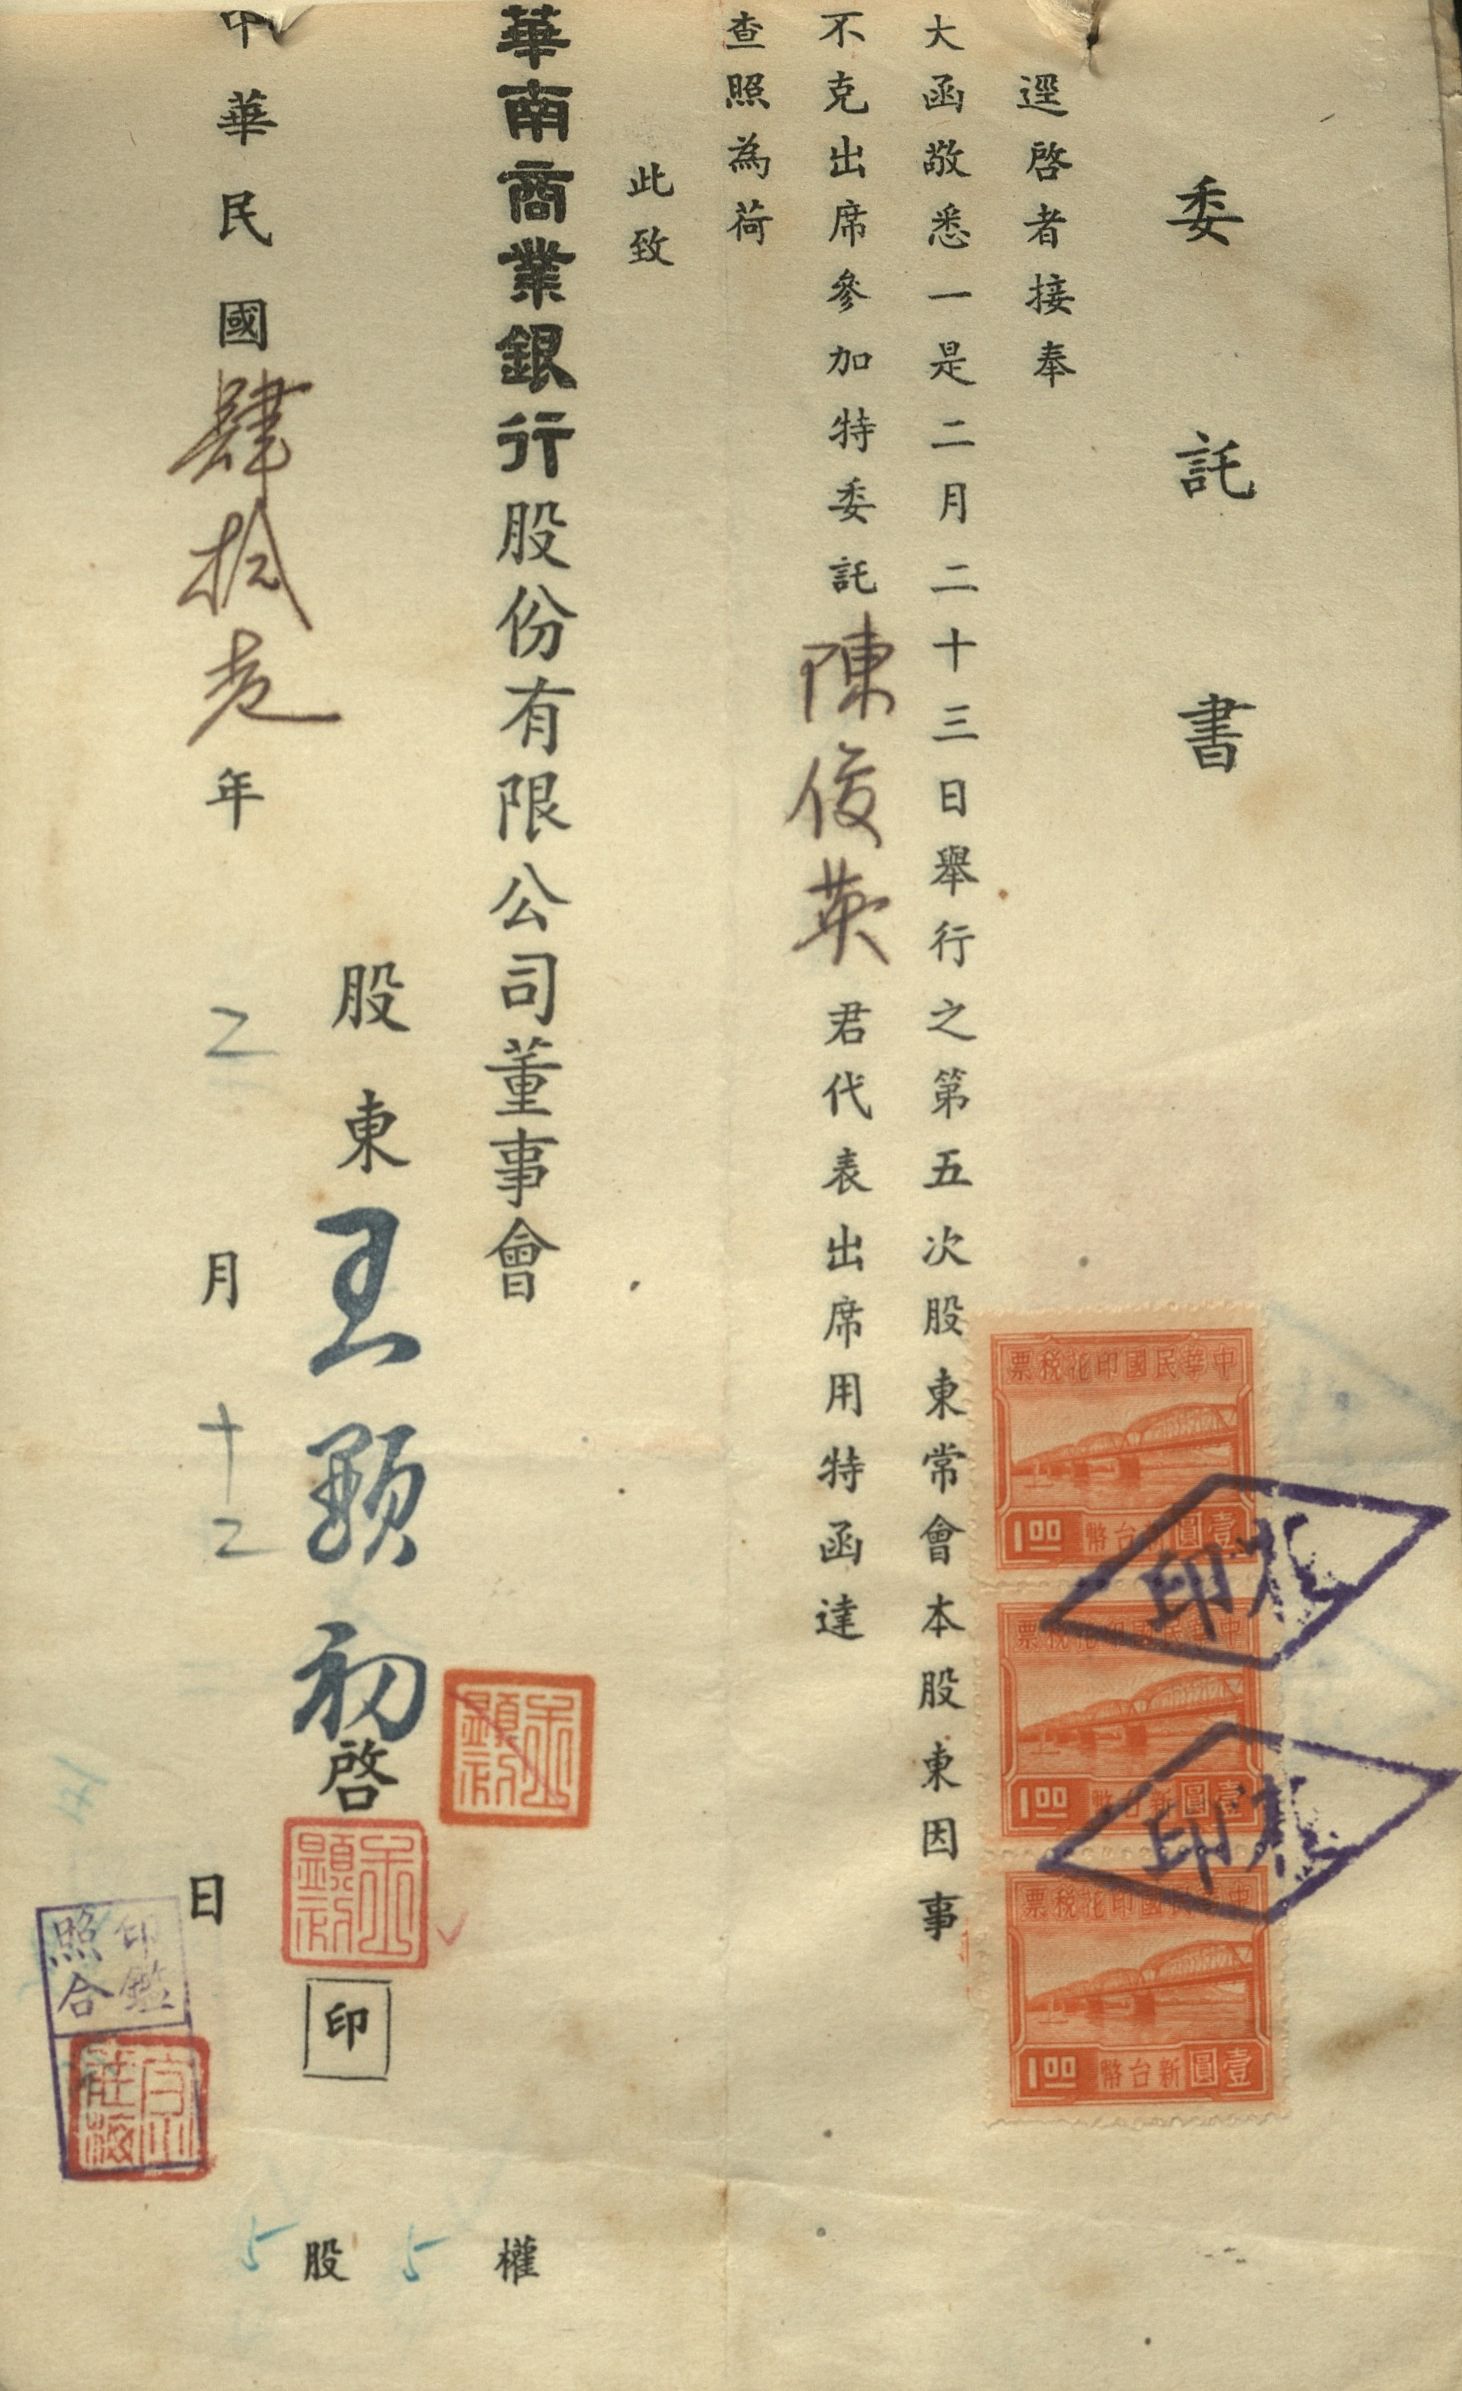 委託書
逕啓者接奉
大函敬悉一是二月二十三日舉行之第五次股東常會本股東因事
不克出席參加特委託陳俊英君代表出席用特函達
查照為荷
此致
華南商業銀行股份有限公司董事會
股東王顯初啓
印
中華民國肆拾壹年二月十二日
5股5權
中華民國印花稅票
新台幣壹圓
1.00
中華民國印花稅票
新台幣壹圓
1.00
中華民國印花稅票
新台幣壹圓
1.00
印鑑
照合